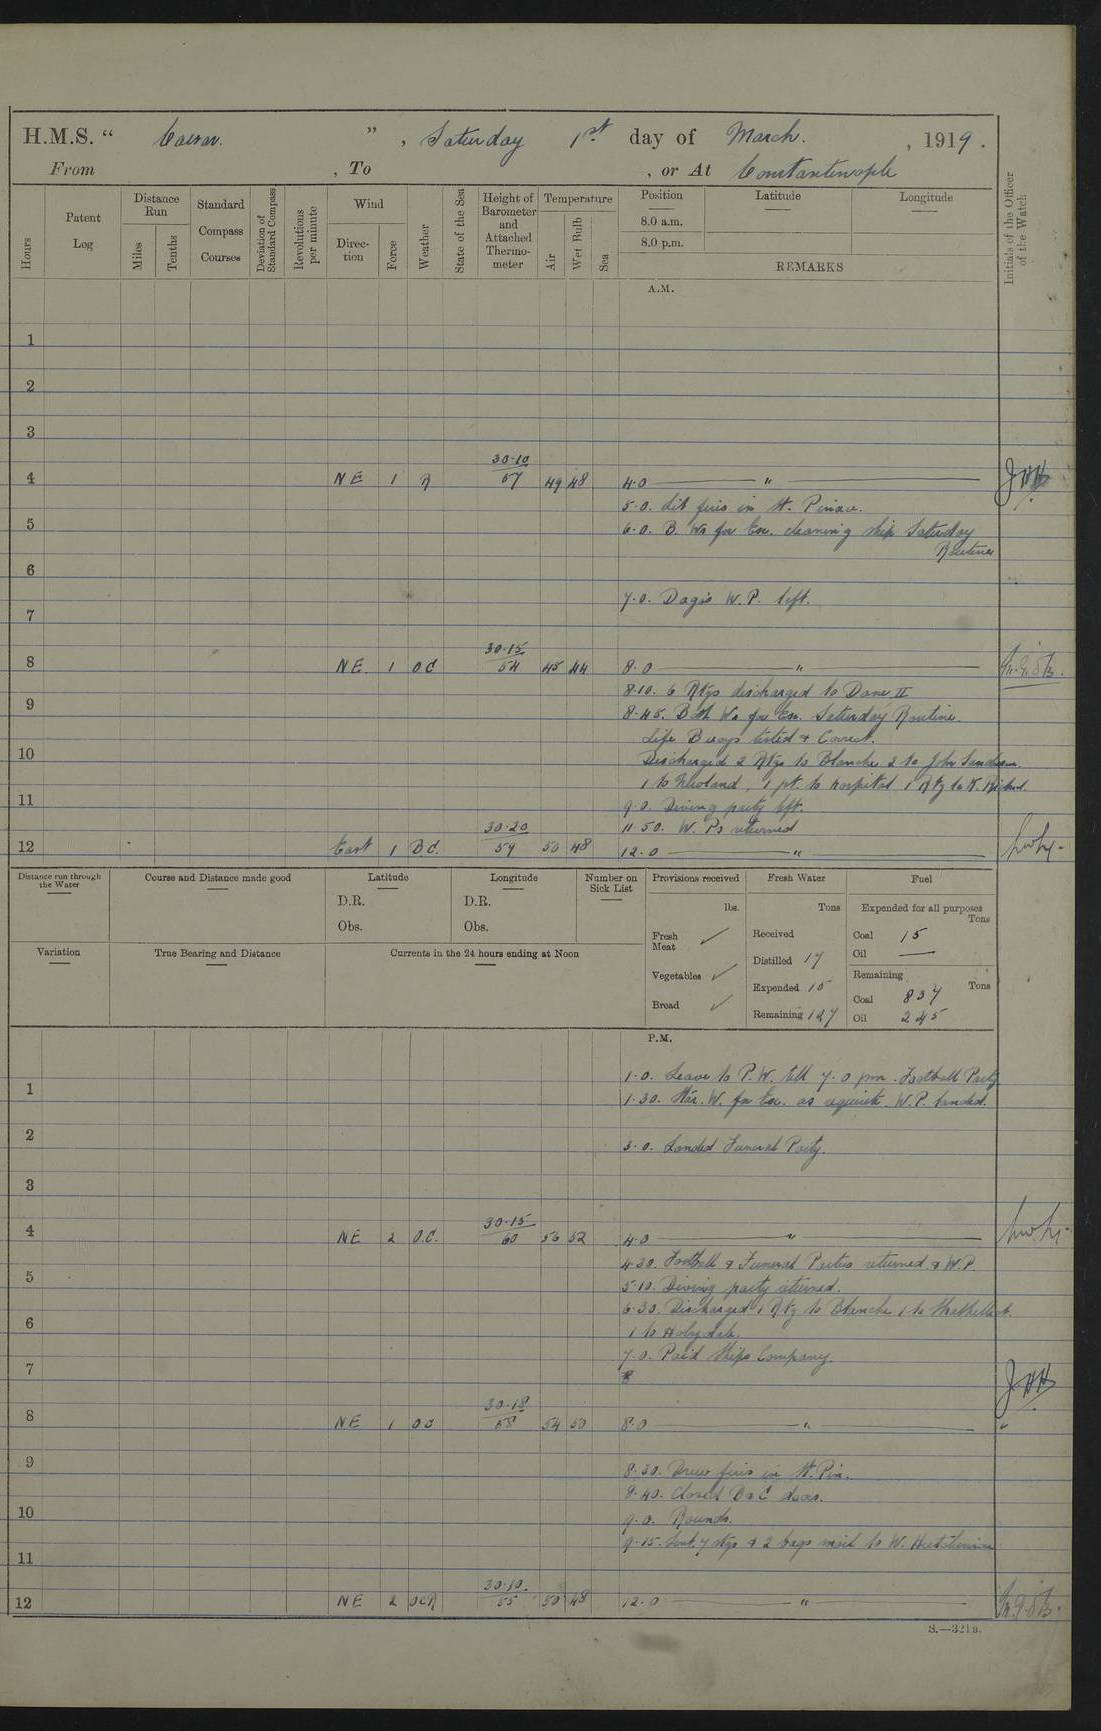 H.M.S. " Caesar. " , Saturday 1st day of March. , 1919.
From , To , or At Constantinople
Hours
Patent Log
Distance Run
Miles
Tenths
Standard Compass Courses
Deviation of Standard Compass
Revolutions per minute
Wind
Direction
Force
Weather
State of the Sea
Height of Barometer and Attached Thermometer
Temperature
Air
Wet Bulb
Sea
Position
8.0 a.m.
8.0 p.m.
Latitude
Longitude
REMARKS
Initials of the Officer of the Watch
A.M.
1
2
3
4 NE 1 R 30·10 57 49 48 4·0 "
5·0. Lit fires in St. Pinnace.
5
6·0. B. Ws for Ex. cleaning ship Saturday
Routine
6
7·0. W. P. left.
7
8 NE 1 OC 30·15 54 45 44 8·0 "
8·10. 6 Rtgs discharged to Dane II
9
8·45. Both Ws for Ex. Saturday Routine.
Life Buoys tested & Correct.
10
Discharged 2 Rtgs to Blanche 2 to John
1 to , 1 pt. to hospital 1 Rtg to K.
11
9·0. Diving party left.
11·50. W. Ps returned
12 East 1 BC. 30·20 59 50 48 12·0 "
Distance run through the Water
Course and Distance made good
Latitude
D.R.
Obs.
Longitude
D.R.
Obs.
Number on Sick List
Provisions received
lbs.
Fresh Meat ✓
Vegetables ✓
Bread ✓
Fresh Water
Tons
Received
Distilled 17
Expended 15
Remaining 127
Fuel
Expended for all purposes
Tons
Coal 15
Oil —
Remaining
Tons
Coal 837
Oil 245
Variation
True Bearing and Distance
Currents in the 24 hours ending at Noon
P.M.
1·0. Leave to P.W. till 7·0 pm. Football Party
1
1·30. W. for Ex. as requisite. W.P. landed.
2
3·0. Landed Funeral Party.
3
4 NE 2 O.C. 30·15 60 56 52 4·0 "
4·30. Football & Funeral Parties returned & W.P.
5
5·10. Diving party returned.
6·30. Discharged 1 Rtg to Blanche 1 to
6
1 to
7·0. Paid Ships Company.
7
JHH
8 NE 1 OC 30·18 58 54 50 8·0 "
9
8·30. Drew fires in St. Pin.
8·40. Closed D & C doors.
10
9·0. Rounds.
9·15. Sent 7 rtgs & 2 bags mail to W.
11
12 NE 2 OCR 30·10 55 50 48 12·0 "
S.—321B.